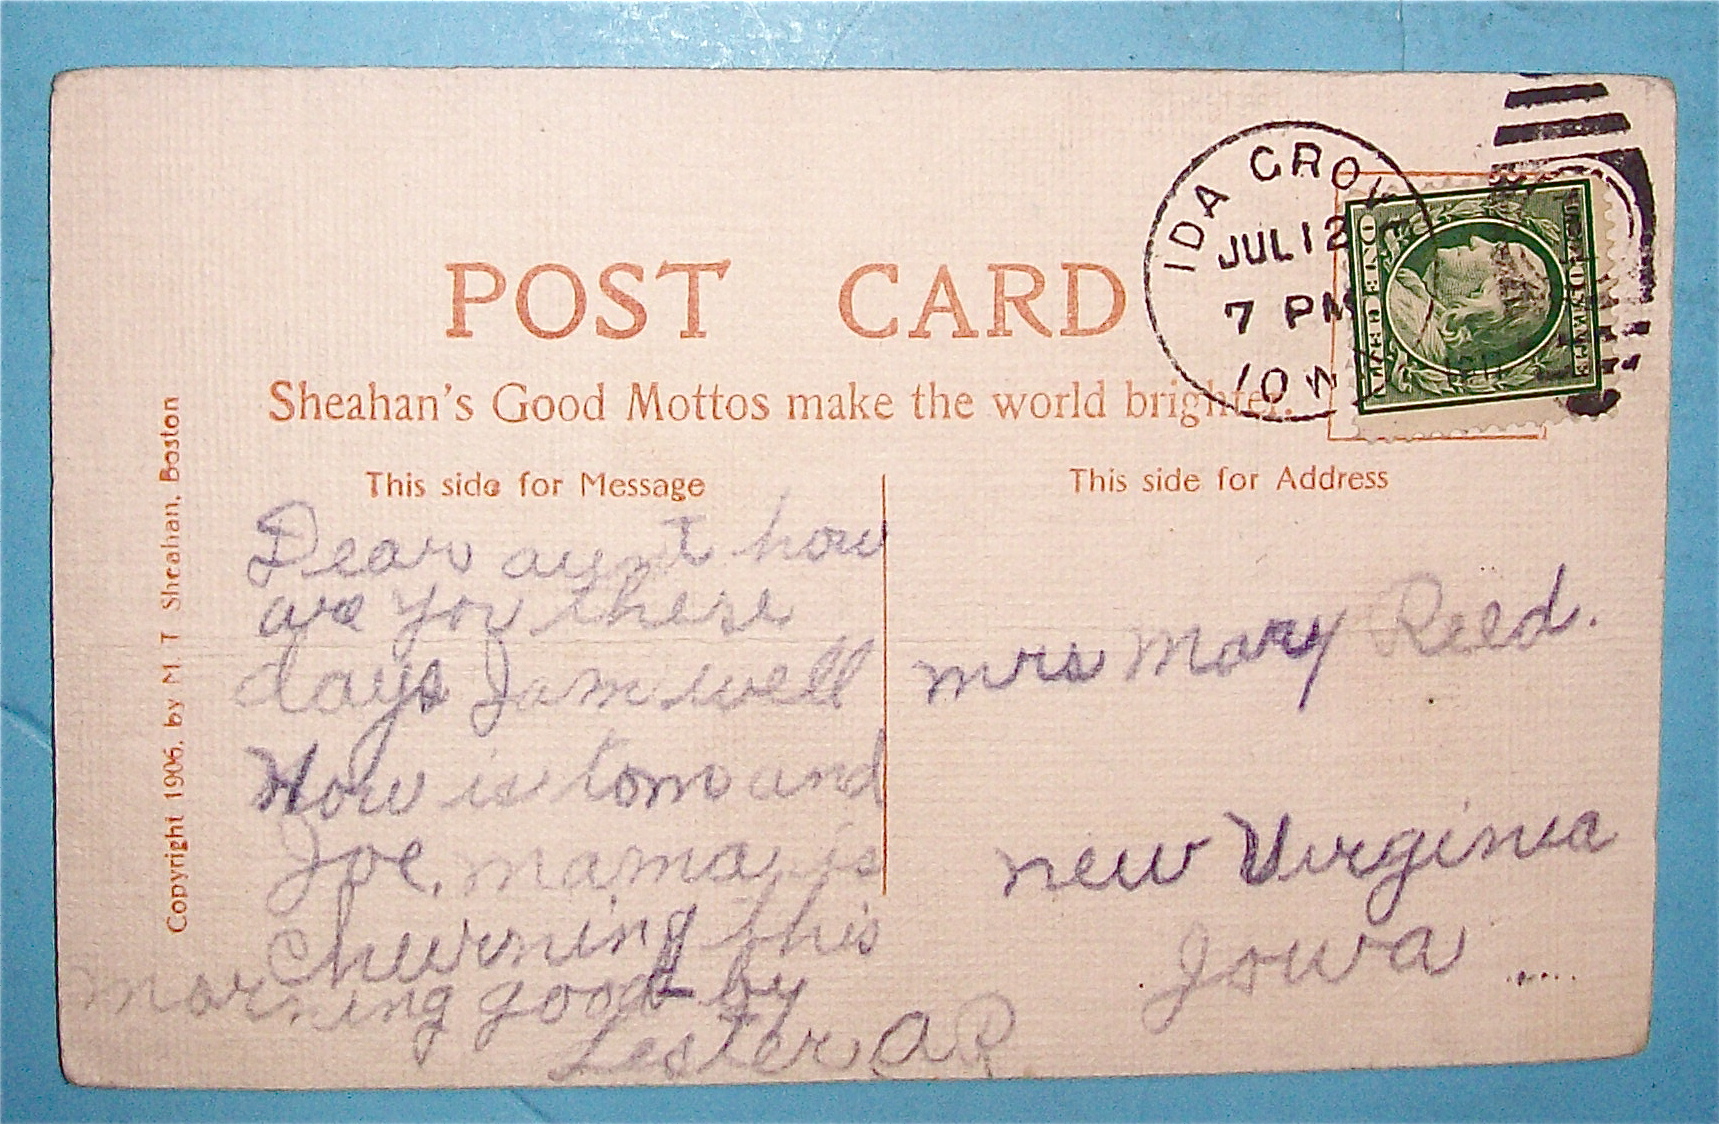 POST CARD
Sheahan's Good Mottos make the world brighter.
This side for Message
This side for Address
Copyright 1906, by M. T. Sheahan, Boston
IDA GROVE
JUL 12
7 PM
IOWA
ONE CENT
Dear aunt how
are you these
days I am well
How is tom and
Joe. mama is
chewrning this
morning good-by
Lester A R
mrs Mary Reed.
new Virginia
Iowa